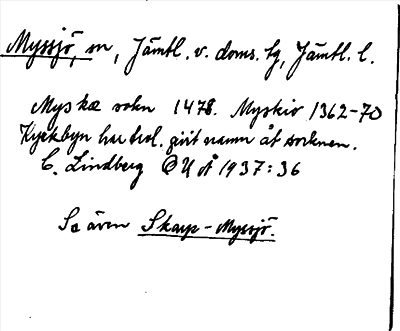 Myssjö, sn, Jämtl. v. doms. tg, Jämtl. l.
Myskæ sokn 1478. Myskio 1362-70
Kyrkbyn har trol. givit namn åt socknen.
C. Lindberg OUÅ 1937:36
Se även Skarp-Myssjö.